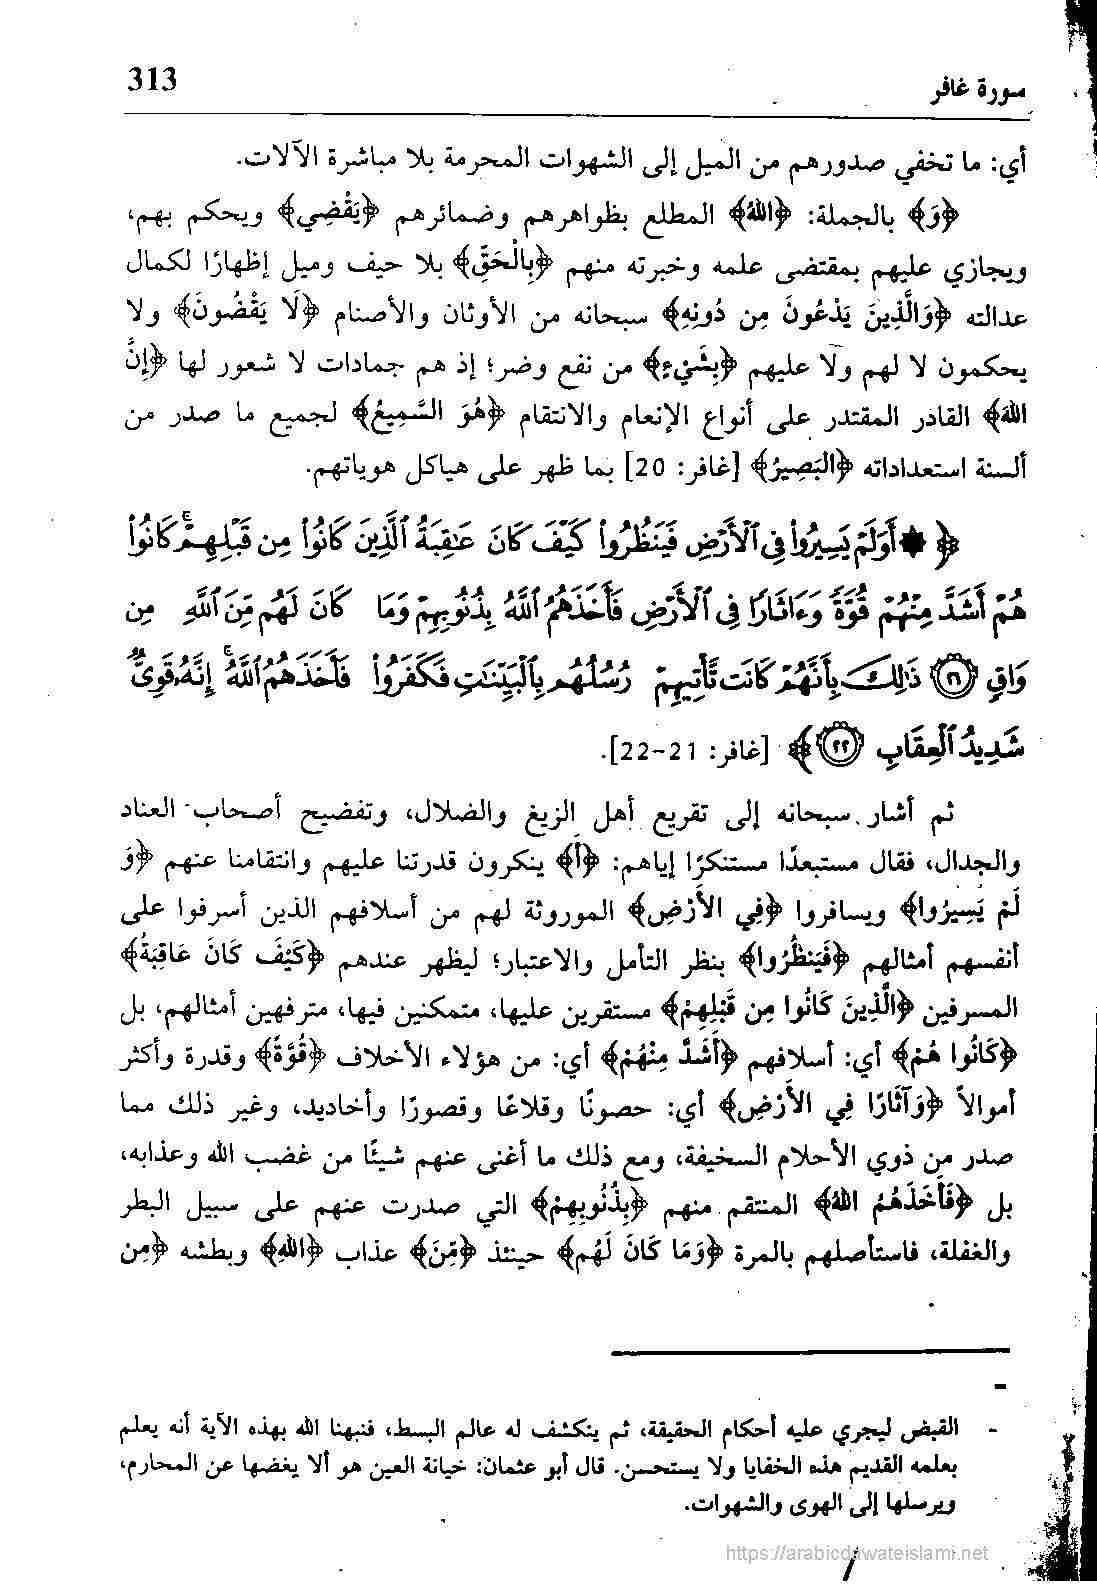 سورة غافر
313
أي: ما تخفي صدورهم من الميل إلى الشهوات المحرمة بلا مباشرة الآلات.
﴿وَ﴾ بالجملة: ﴿اللهُ﴾ المطلع بظواهرهم وضمائرهم ﴿يَقْضِي﴾ ويحكم بهم،
ويجازي عليهم بمقتضى علمه وخبرته منهم ﴿بِالْحَقِّ﴾ بلا حيف وميل إظهارًا لكمال
عدالته ﴿وَالَّذِينَ يَدْعُونَ مِن دُونِهِ﴾ سبحانه من الأوثان والأصنام ﴿لَا يَقْضُونَ﴾ ولا
يحكمون لا لهم ولا عليهم ﴿بِشَيْءٍ﴾ من نفع وضر؛ إذ هم جمادات لا شعور لها ﴿إِنَّ
اللهَ﴾ القادر المقتدر على أنواع الإنعام والانتقام ﴿هُوَ السَّمِيعُ﴾ لجميع ما صدر من
ألسنة استعداداته ﴿البَصِيرُ﴾ [غافر: 20] بما ظهر على هياكل هوياتهم.
﴿۞ أَوَلَمْ يَسِيرُوا۟ فِى ٱلْأَرْضِ فَيَنظُرُوا۟ كَيْفَ كَانَ عَـٰقِبَةُ ٱلَّذِينَ كَانُوا۟ مِن قَبْلِهِمْ ۚ كَانُوا۟
هُمْ أَشَدَّ مِنْهُمْ قُوَّةً وَءَاثَارًا فِى ٱلْأَرْضِ فَأَخَذَهُمُ ٱللَّهُ بِذُنُوبِهِمْ وَمَا كَانَ لَهُم مِّنَ ٱللَّهِ مِن
وَاقٍ ۝٢١ ذَٰلِكَ بِأَنَّهُمْ كَانَت تَّأْتِيهِمْ رُسُلُهُم بِٱلْبَيِّنَـٰتِ فَكَفَرُوا۟ فَأَخَذَهُمُ ٱللَّهُ ۚ إِنَّهُۥ قَوِىٌّ
شَدِيدُ ٱلْعِقَابِ ۝٢٢﴾ [غافر: 21-22].
ثم أشار سبحانه إلى تقريع أهل الزيغ والضلال، وتفضيح أصحاب العناد
والجدال، فقال مستبعدًا مستنكرًا إياهم: ﴿أَ﴾ ينكرون قدرتنا عليهم وانتقامنا عنهم ﴿وَ
لَمْ يَسِيرُوا﴾ ويسافروا ﴿فِي الأَرْضِ﴾ الموروثة لهم من أسلافهم الذين أسرفوا على
أنفسهم أمثالهم ﴿فَيَنظُرُوا﴾ بنظر التأمل والاعتبار؛ ليظهر عندهم ﴿كَيْفَ كَانَ عَاقِبَةُ﴾
المسرفين ﴿الَّذِينَ كَانُوا مِن قَبْلِهِمْ﴾ مستقرين عليها، متمكنين فيها، مترفهين أمثالهم، بل
﴿كَانُوا هُمْ﴾ أي: أسلافهم ﴿أَشَدَّ مِنْهُمْ﴾ أي: من هؤلاء الأخلاف ﴿قُوَّةً﴾ وقدرة وأكثر
أموالاً ﴿وَآثَارًا فِي الأَرْضِ﴾ أي: حصونًا وقلاعًا وقصورًا وأخاديد، وغير ذلك مما
صدر من ذوي الأحلام السخيفة، ومع ذلك ما أغنى عنهم شيئًا من غضب الله وعذابه،
بل ﴿فَأَخَذَهُمُ اللهُ﴾ المنتقم منهم ﴿بِذُنُوبِهِمْ﴾ التي صدرت عنهم على سبيل البطر
والغفلة، فاستأصلهم بالمرة ﴿وَمَا كَانَ لَهُم﴾ حينئذ ﴿مِّنَ﴾ عذاب ﴿اللهِ﴾ وبطشه ﴿مِن
- القبض ليجري عليه أحكام الحقيقة، ثم ينكشف له عالم البسط، فنبهنا الله بهذه الآية أنه يعلم
بعلمه القديم هذه الخفايا ولا يستحسن. قال أبو عثمان: خيانة العين هو ألا يغضها عن المحارم،
ويرسلها إلى الهوى والشهوات.
https://arabicdawateislami.net